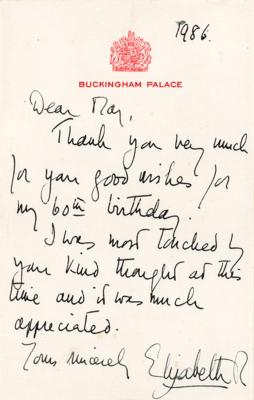 1986.
BUCKINGHAM PALACE
Dear May,
Thank you very much
for your good wishes for
my 60th birthday.
I was most touched by
your kind thought at this
time and it was much
appreciated.
Yours sincerely Elizabeth R